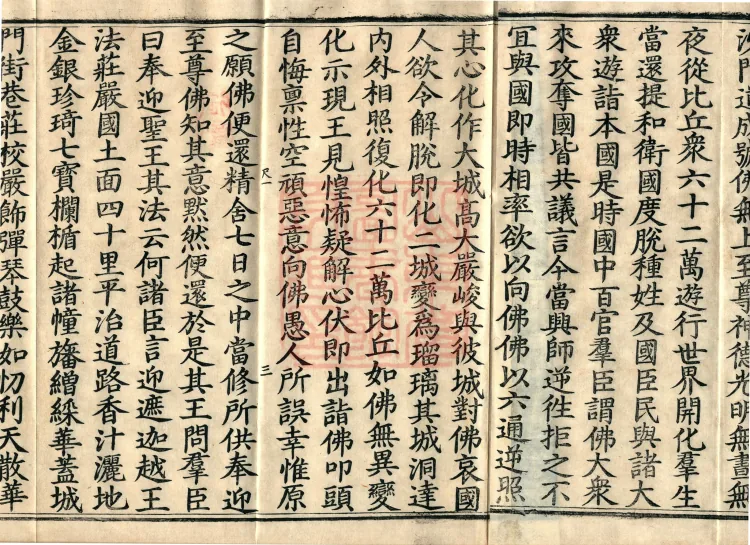 沙門道成號佛無上至尊神德光明無晝無
夜從比丘衆六十二萬遊行世界開化羣生
當還提和衛國度脫種姓及國臣民與諸大
衆遊詣本國是時國中百官羣臣謂佛大衆
來攻奪國皆共議言今當興師逆徃拒之不
冝與國即時相率欲以向佛佛以六通逆照
其心化作大城高大嚴峻與彼城對佛哀國
人欲令解脫即化二城變爲瑠璃其城洞達
内外相照復化六十二萬比丘如佛無異變
化示現王見惶怖疑解心伏即出詣佛叩頭
自悔禀性空頑惡意向佛愚人所誤幸惟原
尺一
三
之願佛便還精舍七日之中當修所供奉迎
至尊佛知其意默然便還於是其王問羣臣
曰奉迎聖王其法云何諸臣言迎遮迦越王
法莊嚴國土面四十里平治道路香汁灑地
金銀珍琦七寶欄楯起諸幢旛繒綵華蓋城
門街巷莊校嚴飾彈琴鼓樂如忉利天散華